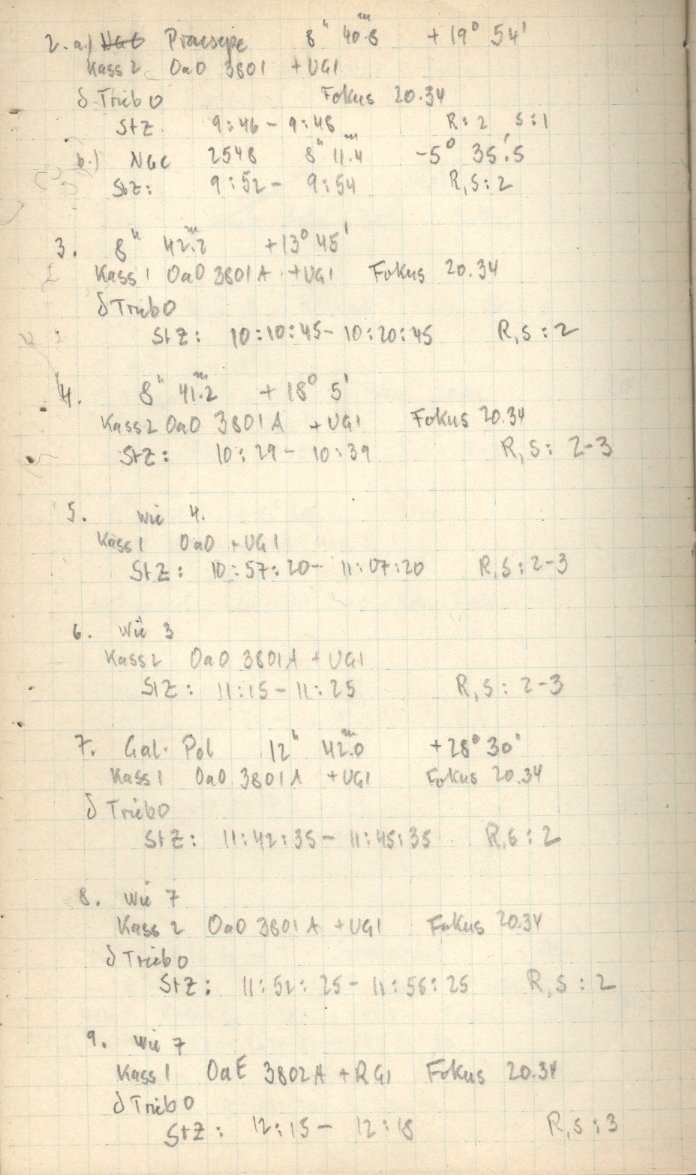 2. a.) NGC Praesepe 8h 40.m8 +19° 54'
Kass 2 OaO 3801 +UG1
δ Trieb 0 Fokus 20.34
StZ 9:46 - 9:48 R:2 S:1
b.) NGC 2548 8h 11.m4 -5° 35.'5
StZ: 9:52 - 9:54 R,S:2
3. 8h 42.m2 +13° 45'
Kass 1 OaO 3801A +UG1 Fokus 20.34
δ Trieb 0
StZ: 10:10:45 - 10:20:45 R,S:2
4. 8h 41.m2 +18° 5'
Kass 2 OaO 3801A +UG1 Fokus 20.34
StZ: 10:29 - 10:39 R,S: 2-3
5. wie 4.
Kass 1 OaO +UG1
StZ: 10:57:20 - 11:07:20 R,S:2-3
6. wie 3
Kass 2 OaO 3801A +UG1
StZ: 11:15 - 11:25 R,S: 2-3
7. Gal. Pol 12h 42.m0 +28° 30'
Kass 1 OaO 3801A +UG1 Fokus 20.34
δ Trieb 0
StZ: 11:42:35 - 11:45:35 R,S:2
8. wie 7
Kass 2 OaO 3801A +UG1 Fokus 20.34
δ Trieb 0
StZ: 11:52:25 - 11:56:25 R,S:2
9. wie 7
Kass 1 OaE 3802A +RG1 Fokus 20.34
δ Trieb 0
StZ: 12:15 - 12:18 R,S:3